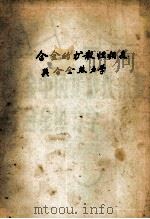 合金的扩散性相变
与合金热力学